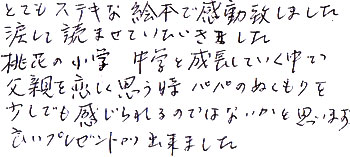 とてもステキな絵本で感動致しました
涙して読ませていただきました
桃花の小学 中学と成長していく中で
父親を恋しく思う時 パパのぬくもりを
少しでも感じられるのではないかと思います
良いプレゼントが出来ました